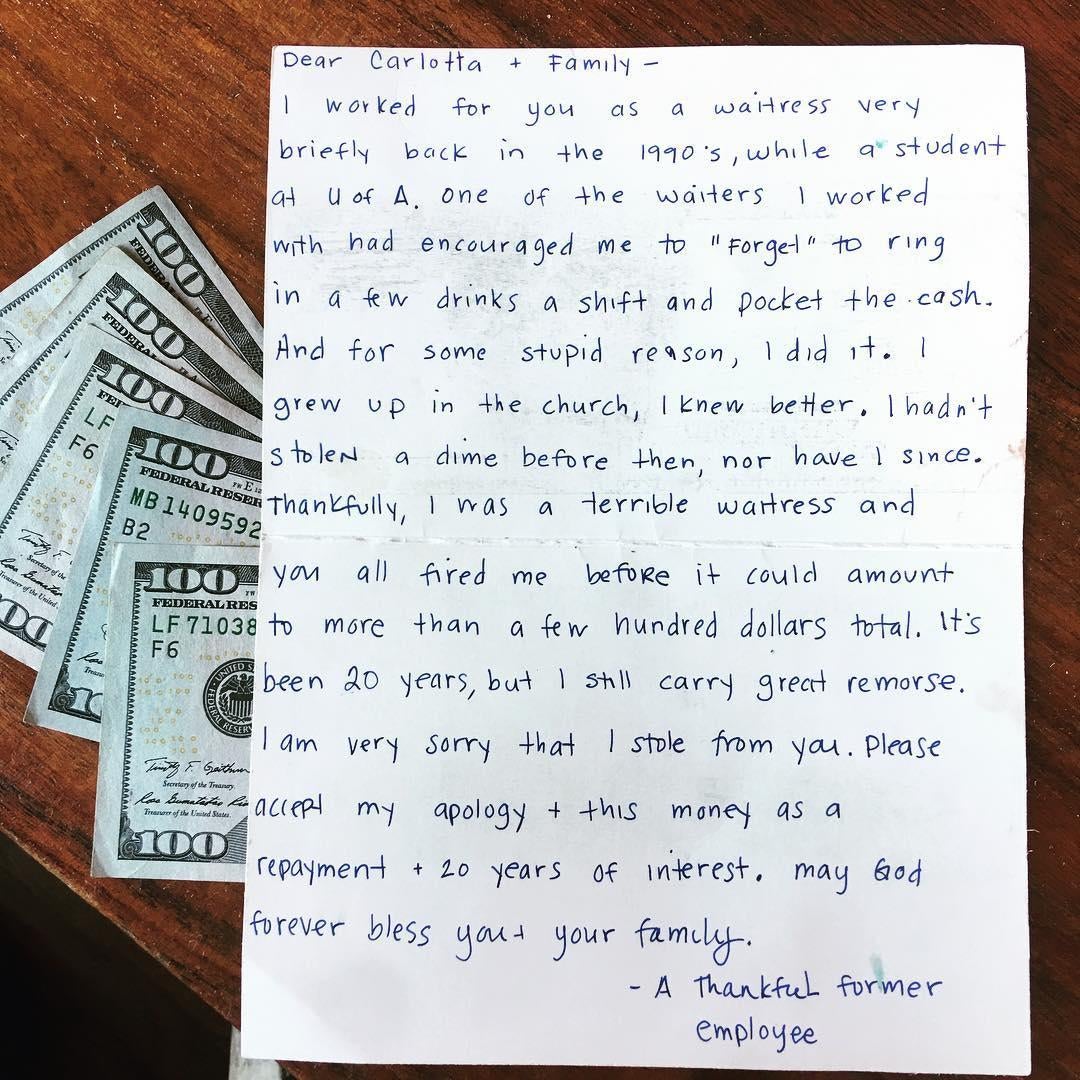 Dear Carlotta + Family -
I worked for you as a waitress very
briefly back in the 1990's, while a student
at U of A. One of the waiters I worked
with had encouraged me to "Forget" to ring
in a few drinks a shift and pocket the cash.
And for some stupid reason, I did it. I
grew up in the church, I knew better. I hadn't
stolen a dime before then, nor have I since.
Thankfully, I was a terrible waitress and
you all fired me before it could amount
to more than a few hundred dollars total. It's
been 20 years, but I still carry great remorse.
I am very sorry that I stole from you. Please
accept my apology + this money as a
repayment + 20 years of interest. may God
forever bless you + your family.
- A Thankful former
employee
100
100
100
LF
F6
100
FEDERAL RESER
MB 1409592
B2
100
FEDERAL RES
LF 71038
F6
Secretary of the Treasury
Treasurer of the United States
100